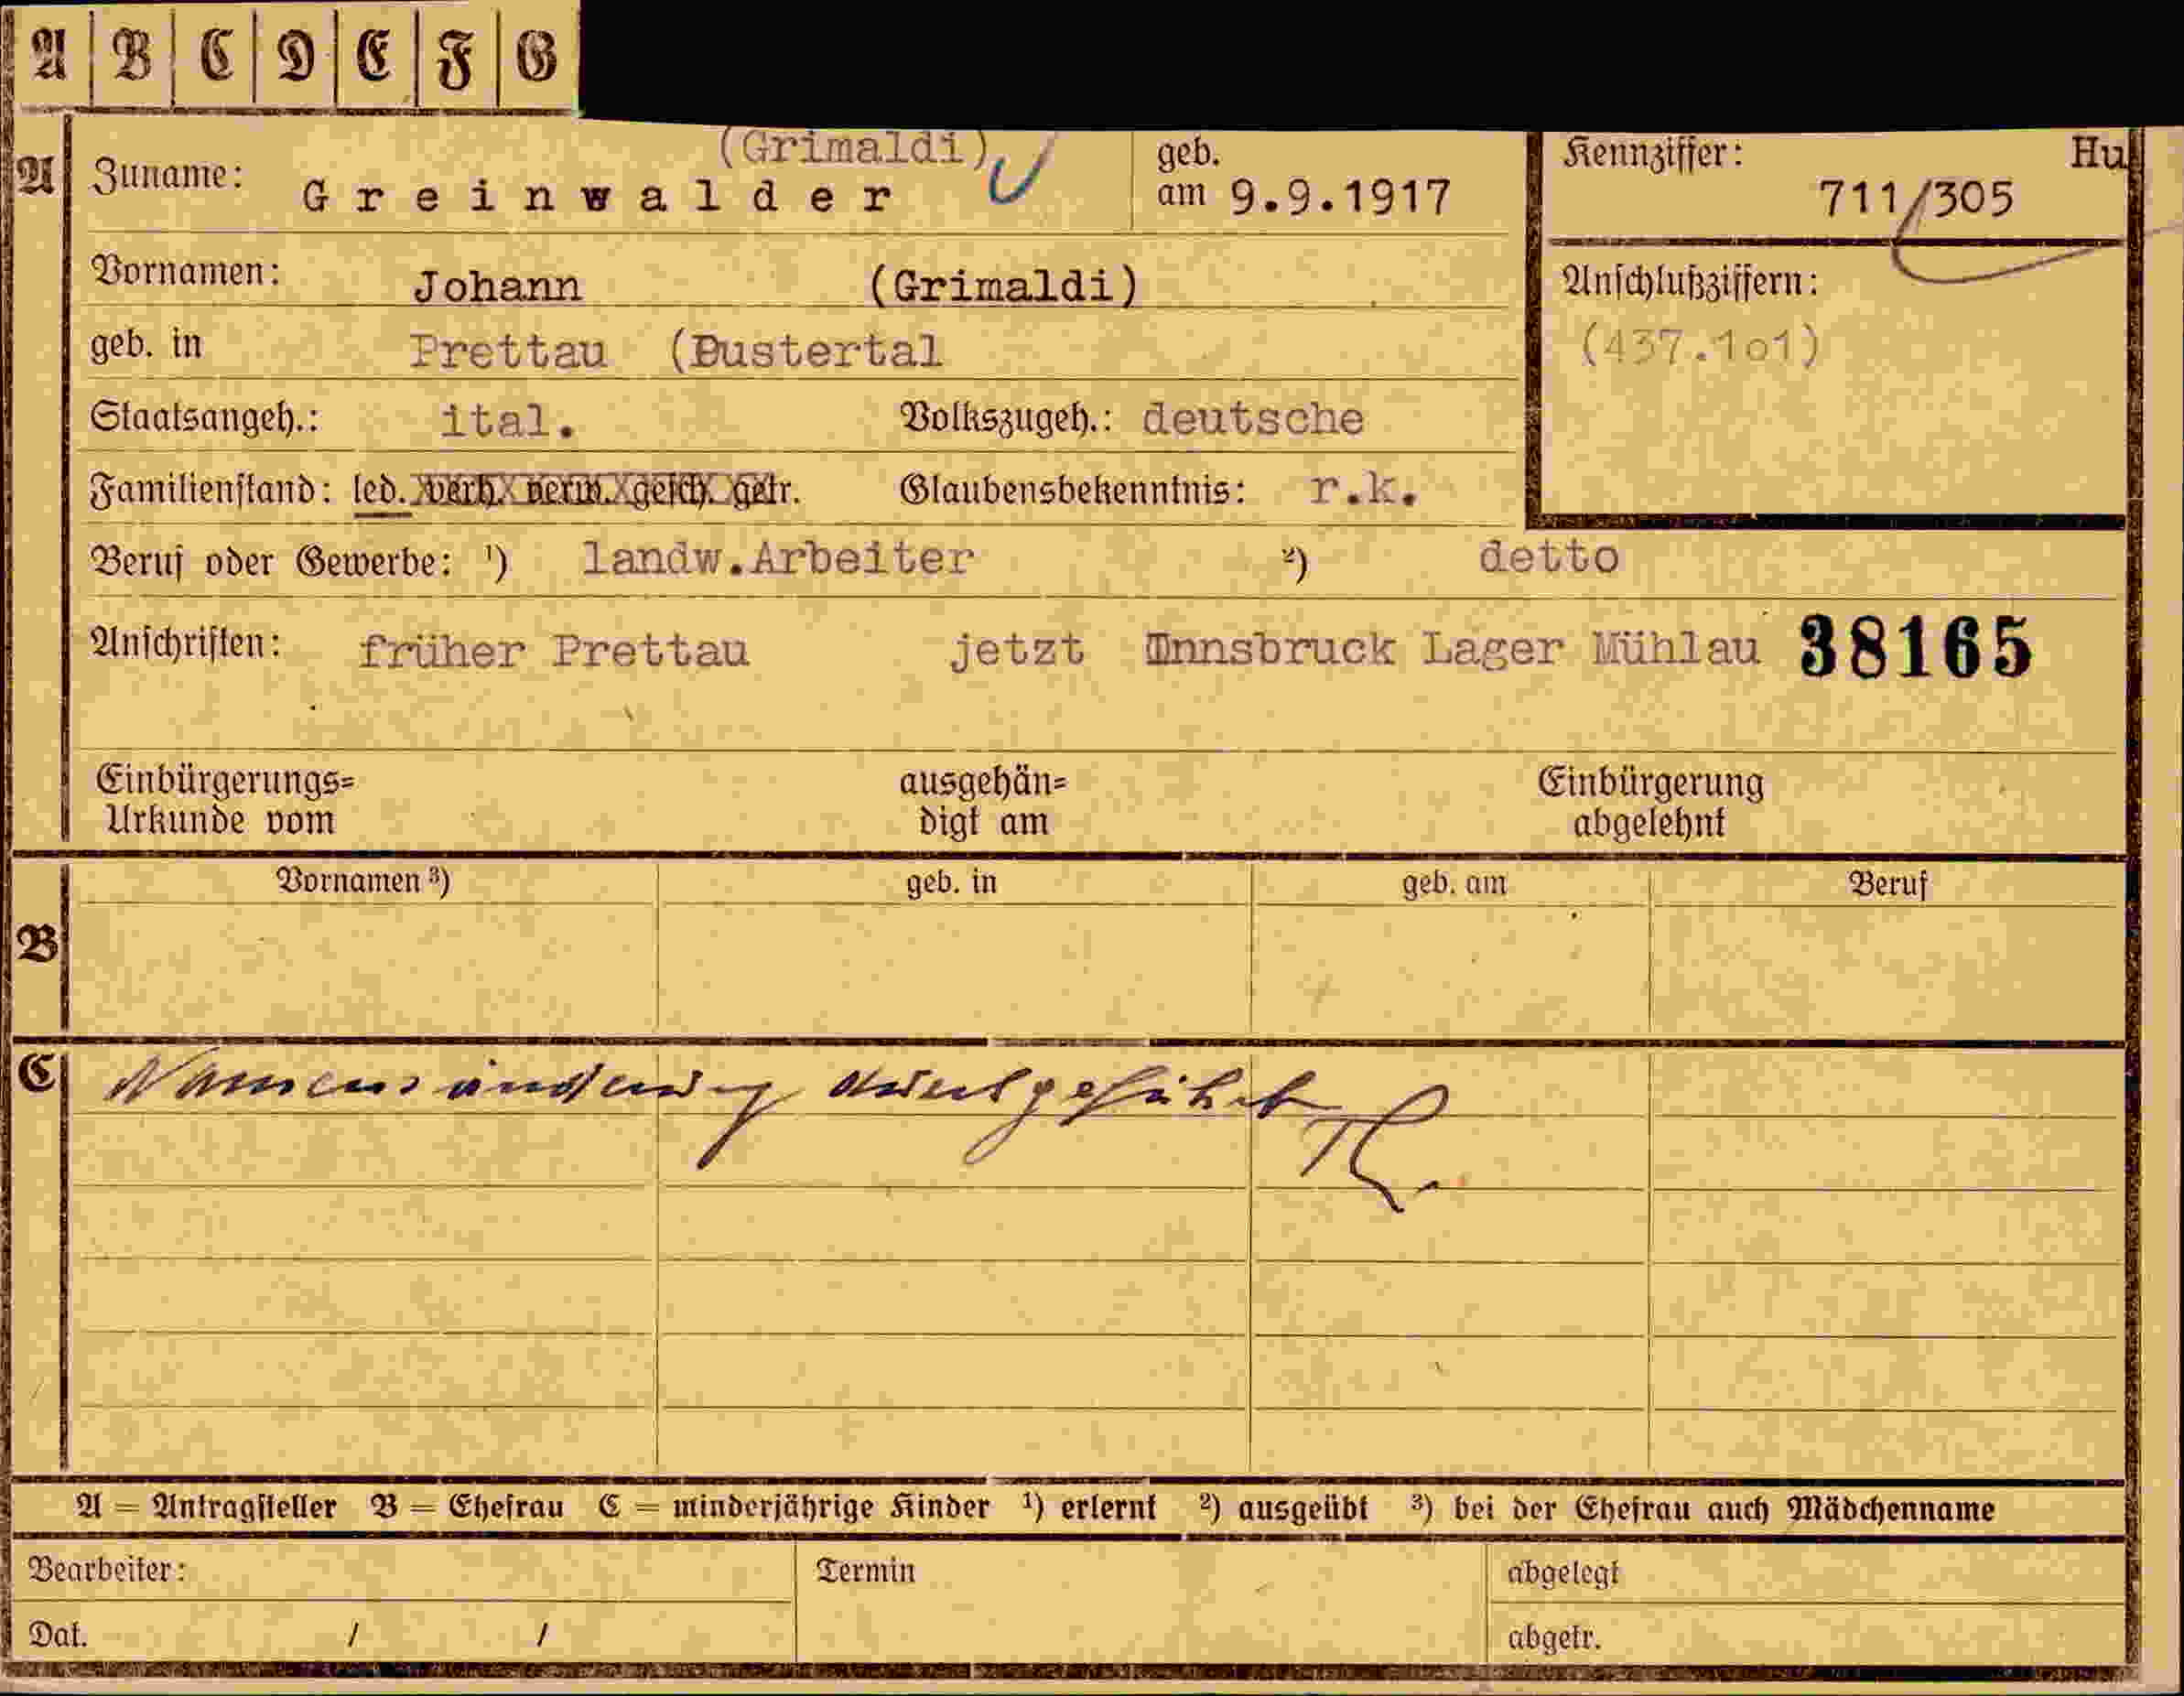 A B C D E F G
(Grimaldi)
A Zuname: Greinwalder
geb. am 9.9.1917
Kennziffer: Hu
711/305
Vornamen: Johann (Grimaldi)
Anschlußziffern:
(437.1o1)
geb. in Prettau (Pustertal
Staatsangeh.: ital. Volkszugeh.: deutsche
Familienstand: led. verh. verw. gesch. getr. Glaubensbekenntnis: r.k.
Beruf oder Gewerbe: ¹) landw.Arbeiter ²) detto
Anschriften: früher Prettau jetzt Innsbruck Lager Mühlau 38165
Einbürgerungs= ausgehän= Einbürgerung
Urkunde vom digt am abgelehnt
Vornamen ³) geb. in geb. am Beruf
B
C Namensänderung durchgeführt
A = Antragsteller B = Ehefrau C = minderjährige Kinder ¹) erlernt ²) ausgeübt ³) bei der Ehefrau auch Mädchenname
Bearbeiter: Termin abgelegt
Dat. / / abgetr.